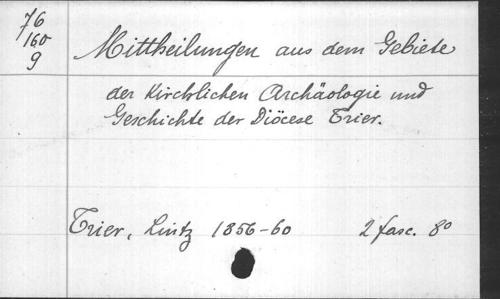 76
160
9
Mittheilungen aus dem Gebiete
der Kirchlichen Archäologie und
Geschichte der Diöcese Trier.
Trier, Lintz 1856-60 2 fasc. 8º